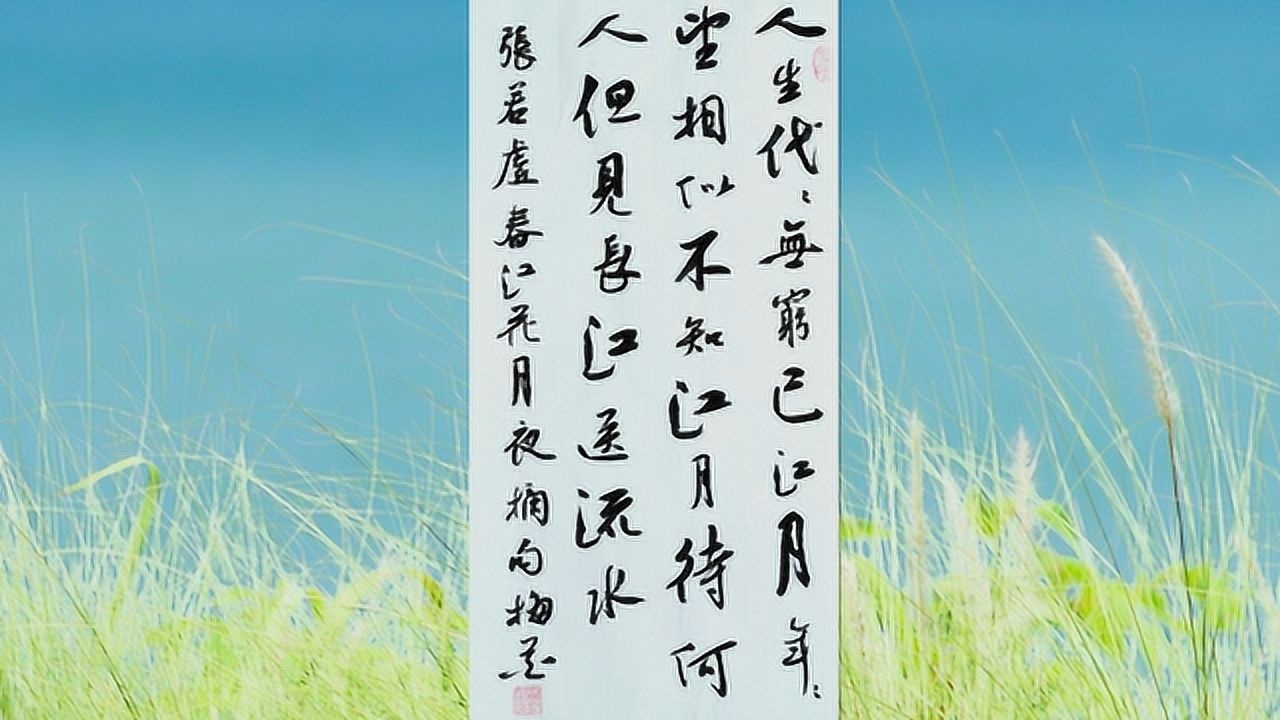 人生代々無窮已江月年々
望相似不知江月待何
人但見長江送流水
張若虛春江花月夜摘句梅